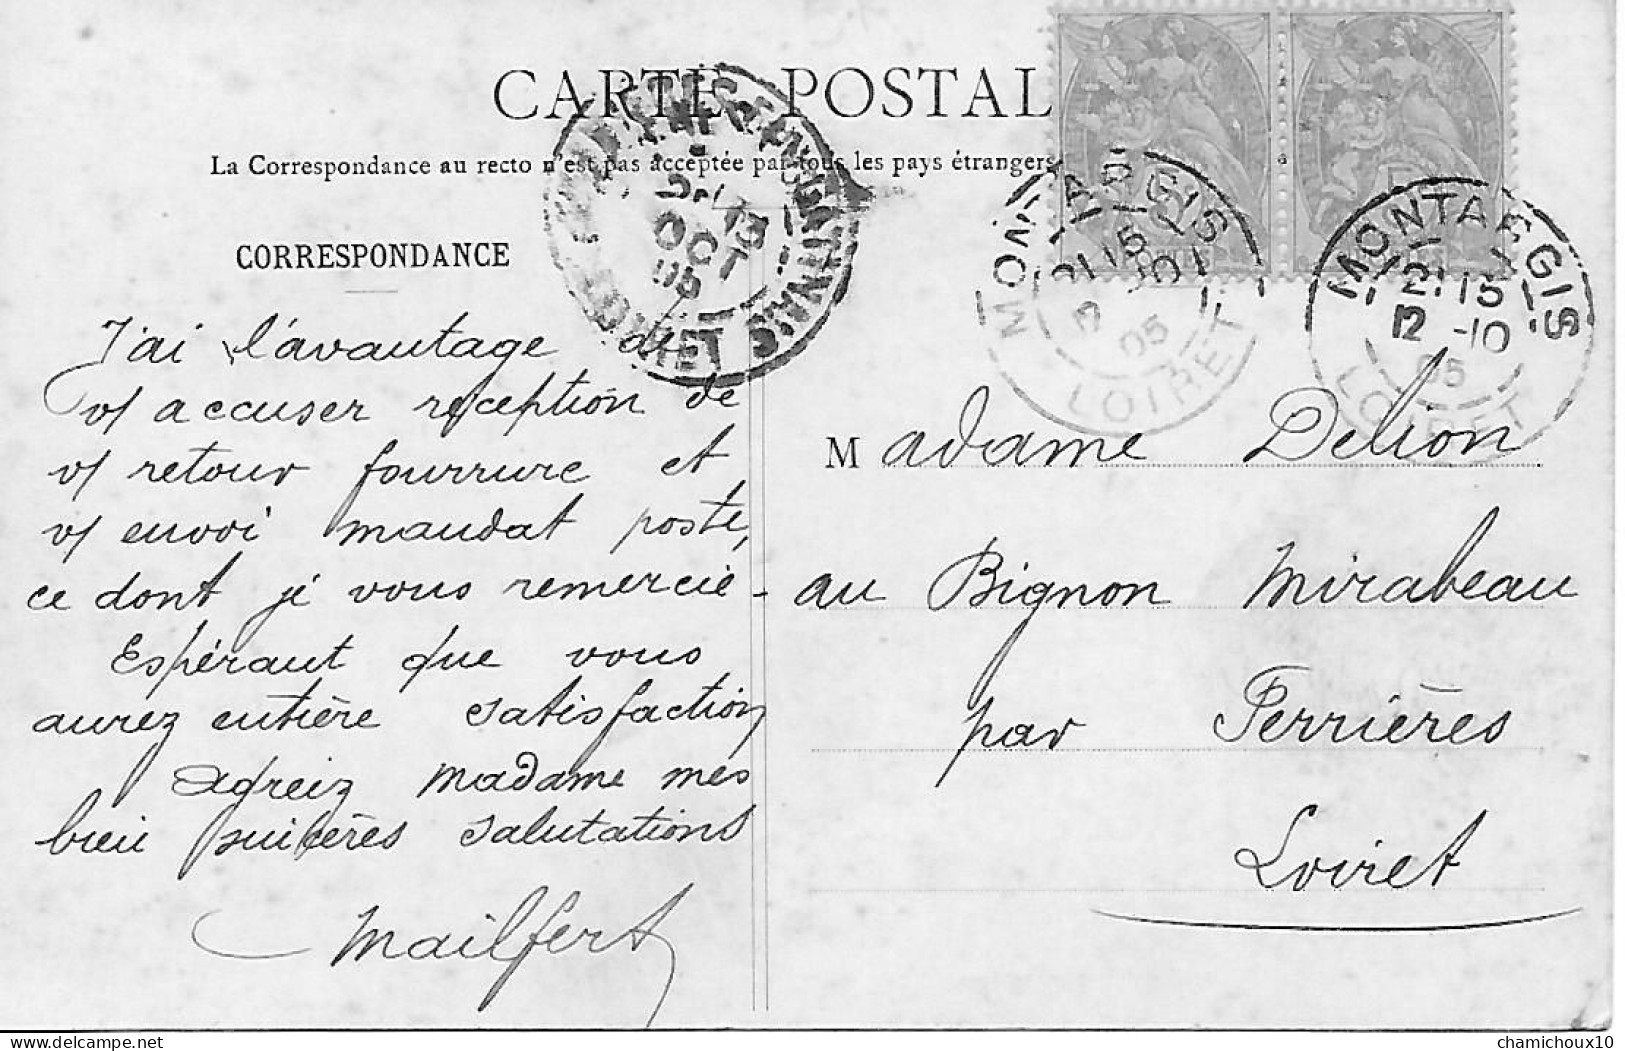 CARTE POSTAL
La Correspondance au recto n'est pas acceptée par tous les pays étrangers
CORRESPONDANCE
J'ai l'avantage de
v/ accuser reception de
v/ retour fourrure et
v/ envoi mandat poste,
ce dont je vous remercie -
Espérant que vous
aurez entière satisfaction
Agreez Madame mes
bien sincères salutations
Mailfert
MONTARGIS
21 15
12 -10
05
LOIRET
MONTARGIS
21 15
12 -10
05
LOIRET
13
OCT
05
LOIRET
Madame Delion
au Bignon Mirabeau
par Ferrières
Loiret
delcampe.net
chamichoux10